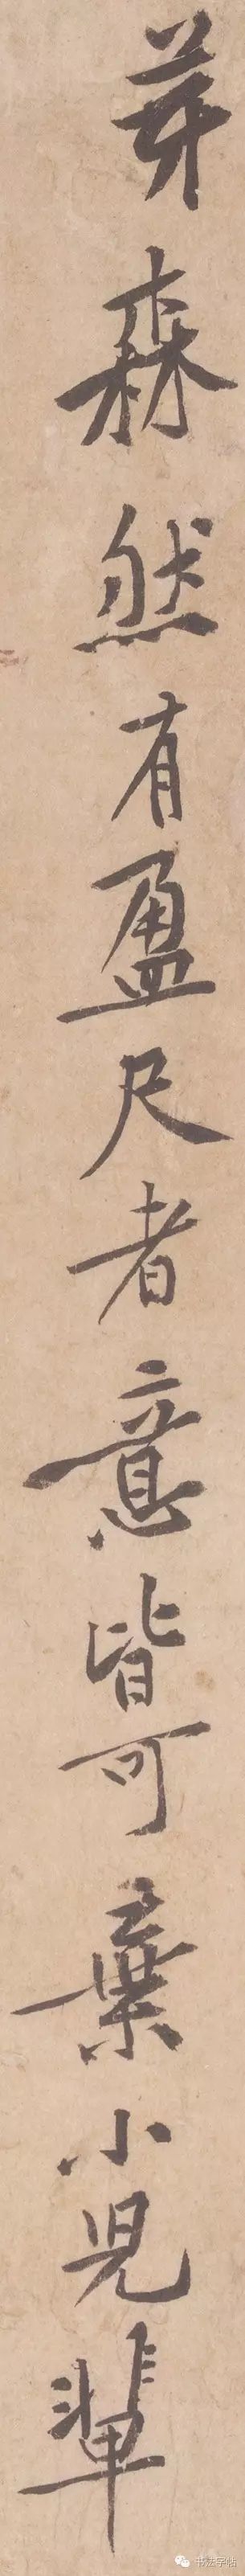 芽森然有盈尺者意皆可棄小兒輩
书法字帖